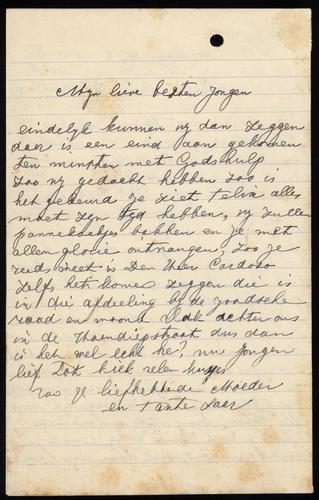 Mijn lieve besten jongen
eindelijk kunnen wij dan zeggen
daar is een eind aan gekomen
ten minsten met Godshulp
zoo wij gedacht hebben zoo is
het gebeurd je ziet alles
moet zijn tijd hebben, wij zullen
pannekoekjes bakken en je met
allen glorie ontvangen, zoo je
reeds weet is Den Heer Cardozo
zelfs het komen zeggen die is
in die afdeeling bij de joodsche
raad en woond vlak achter ons
in de dus dan
is het wel echt he, nu jongen
lief tot kiek velen kusjes
van je liefhebbede Moeder
en tante Saar